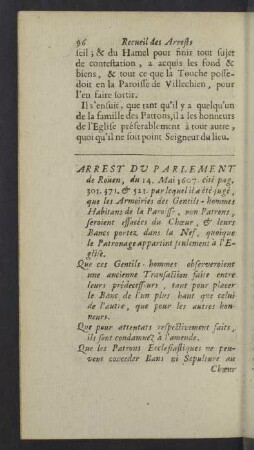 96 Recueil des Arrests
seil; & du Hamel pour finir tout sujet
de contestation, a acquis les fond &
biens, & tout ce que la Touche posse-
doit en la Paroisse de Villechien, pour
l'en faire sortir.
Il s'ensuit, que tant qu'il y a quelqu'un
de la famille des Patrons, il a les honneurs
de l'Eglise préferablement à tout autre,
quoi qu'il ne soit point Seigneur du lieu.
ARREST DU PARLEMENT
de Roüen, du 14. Mai 1607. cité pag.
301. 371. & 523. par lequel il a été jugé,
que les Armoiries des Gentils-hommes
Habitans de la Paroisse, non Patrons,
seroient effacées du Chœur, & leurs
Bancs portez dans la Nef, quoique
le Patronage appartint seulement à l'E-
glise.
Que ces Gentils-hommes observeroient
une ancienne Transaction faite entre
leurs prédecesseurs, tant pour placer
le Banc de l'un plus haut que celui
de l'autre, que pour les autres hon-
neurs.
Que pour attentats respectivement faits,
ils sont condamnez à l'amende.
Que les Patrons Ecclesiastiques ne peu-
vent conceder Banc ni Sepulture au
Chœur